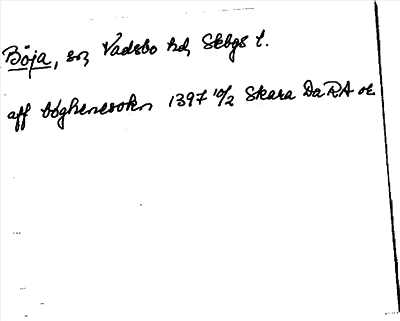 Böja, sn, Vadsbo hd, Skbgs l.
aff bøghenesokn 1397 10/2 Skara DaRA or